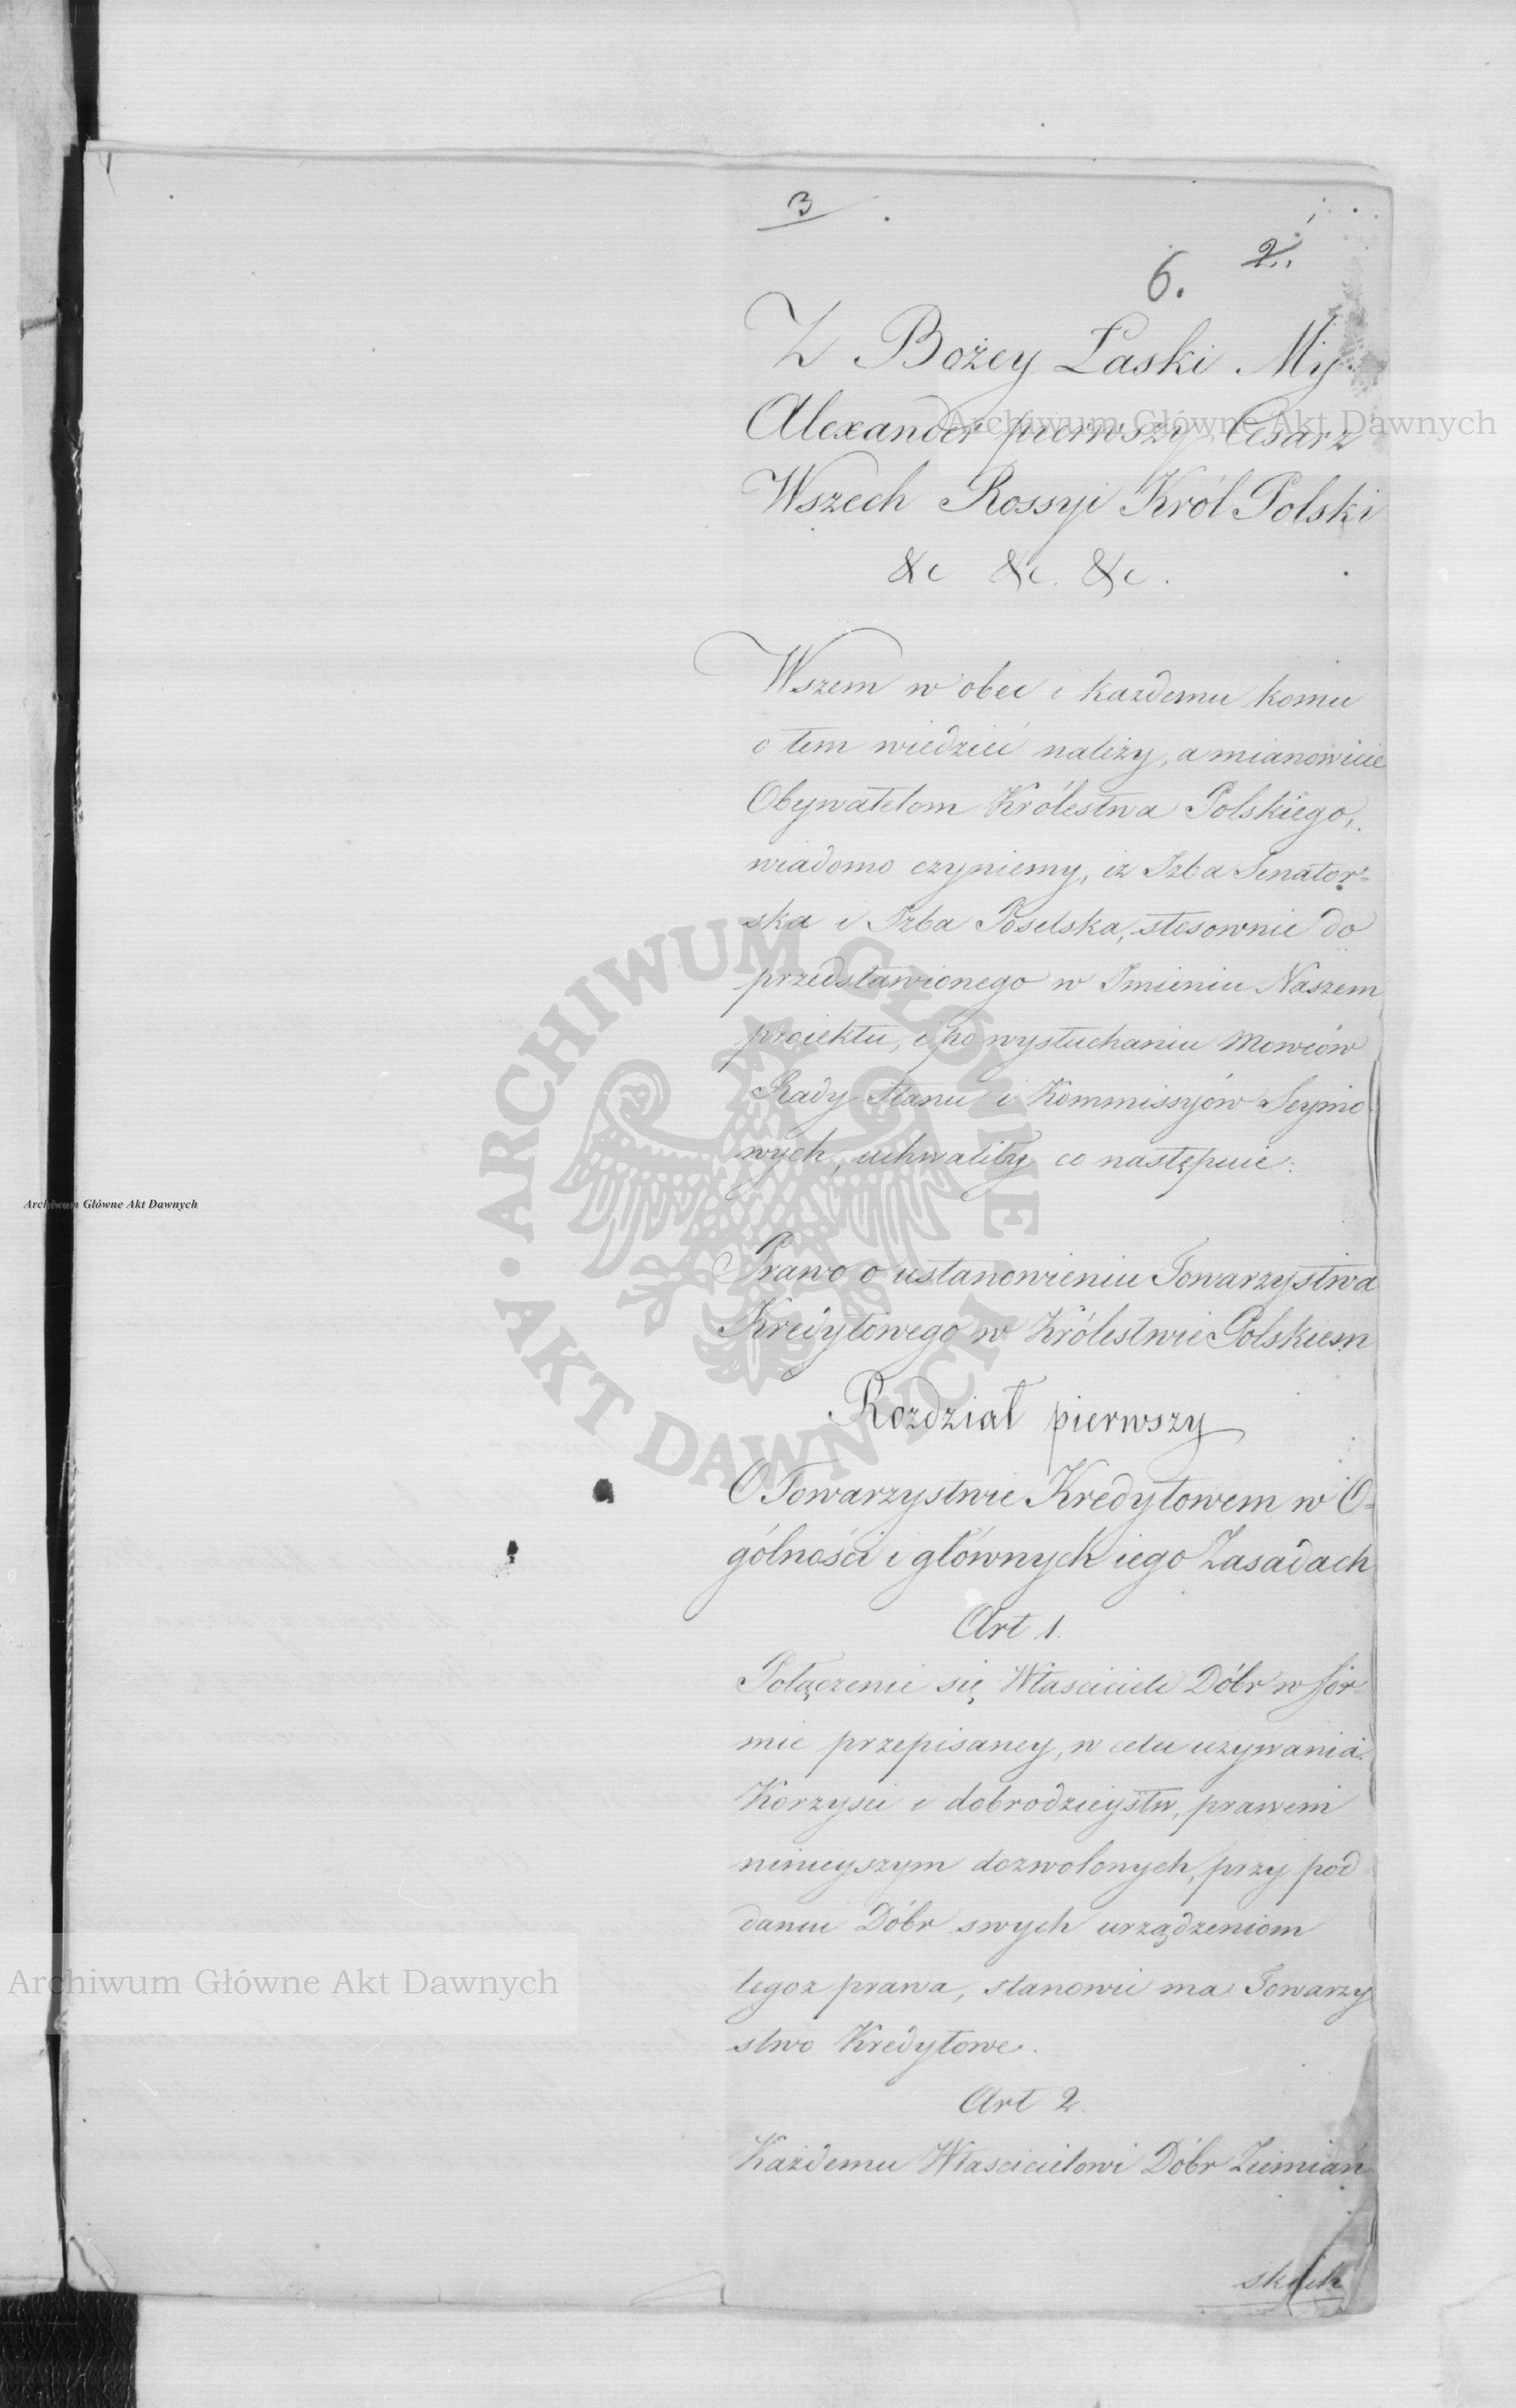 3
6. 2.
Z Bożey Łaski My
Alexander pierwszy Cesarz
Wszech Rossyi Król Polski
&c &c. &c.
Wszem w obec i każdemu komu
o tem wiedzieć należy, a mianowicie
Obywatelom Królestwa Polskiego,
wiadomo czyniemy, iż Izba Senator-
ska i Izba Poselska, stosownie do
przedstawionego w Imieniu Naszem
proiektu, i po wysłuchaniu Mowców
Rady Stanu i Kommissyów Seymo
wych, uchwaliły co następuie:
Prawo o ustanowieniu Towarzystwa
Kredytowego w Królestwie Polskiem
Rozdział pierwszy
O Towarzystwie Kredytowem w O-
gólności i głównych iego Zasadach
Art 1.
Połączenie się Właściciele Dóbr w for-
mie przepisaney, w celu używania
Korzyści i dobrodzieystw, prawem
ninieyszym dozwolonych, przy pod
daniu Dóbr swych urządzeniom
tegoż prawa, stanowić ma Towarzy
stwo Kredytowe.
Art 2.
Każdemu Właścicielowi Dóbr Ziemiań
skich
Archiwum Główne Akt Dawnych
Archiwum Główne Akt Dawnych
Archiwum Główne Akt Dawnych
ARCHIWUM GŁÓWNE • AKT DAWNYCH •